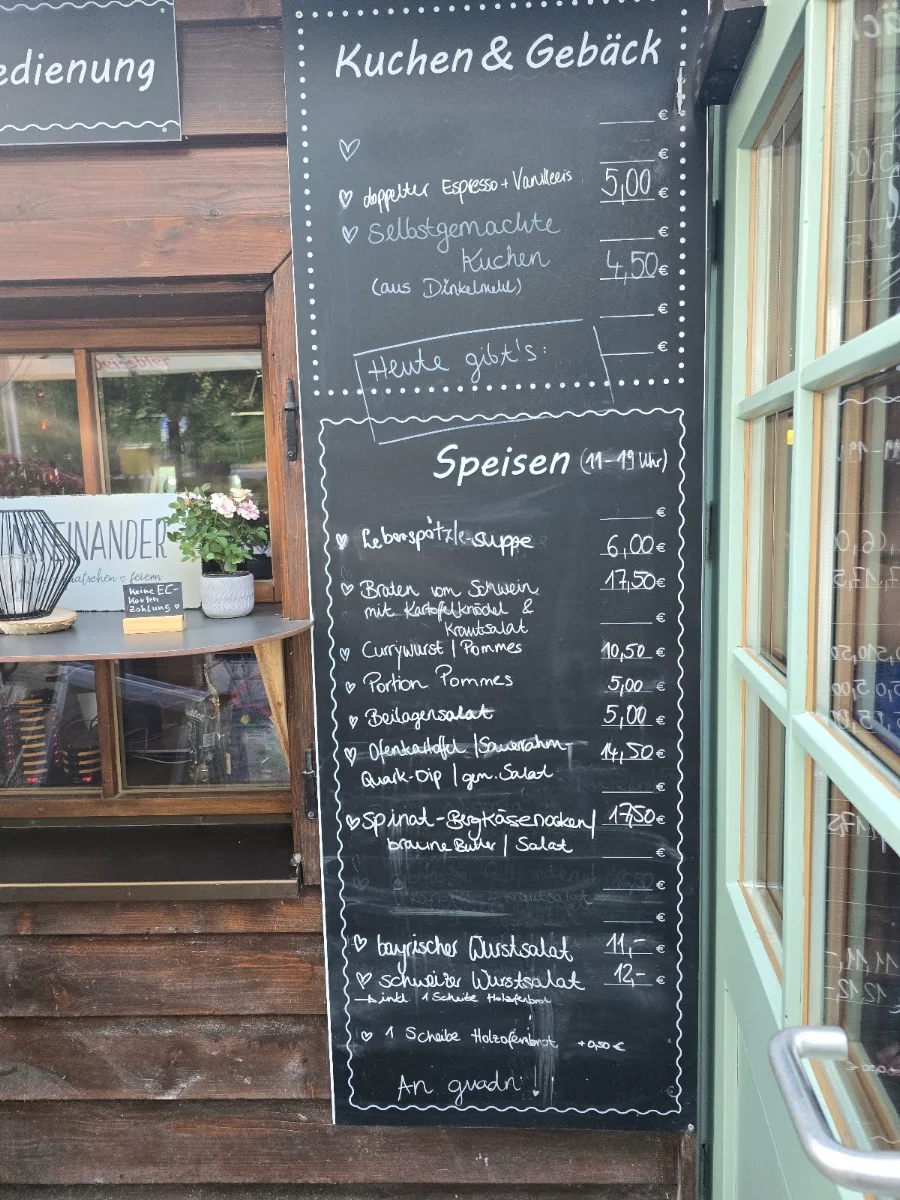 edienung
Kuchen & Gebäck
€
€
doppelter Espresso + Vanilleeis 5,00 €
Selbstgemachte €
Kuchen 4,50 €
(aus Dinkelmehl)
€
€
Heute gibt's:
Speisen (11-19 Uhr)
€
Leberspätzle-suppe 6,00 €
Braten vom Schwein 17,50 €
mit Kartoffelknödel & €
Krautsalat
Currywurst | Pommes 10,50 €
Portion Pommes 5,00 €
Beilagensalat 5,00 €
Ofenkartoffel | Sauerrahm- 14,50 €
Quark-Dip | gem. Salat €
Spinat-Bergkäsenocken | 17,50 €
braune Butter | Salat €
€
€
bayrischer Wurstsalat 11,- €
schweizer Wurstsalat 12,- €
inkl. 1 Scheibe Holzofenbrot
1 Scheibe Holzofenbrot +0,50 €
An guadn!
EINANDER
feiern
Keine EC-
Karten
Zahlung